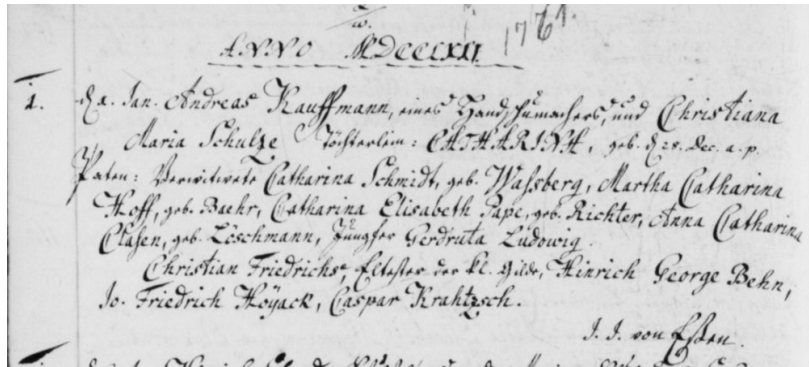 1761.
ANNO MDCCLXI
1. d. 2. Jan. Andreas Kauffmann, eines Handschumachers, und Christiana
Maria Schulze Töchterlein: CATHARINA, geb. d. 28. Dec. a. p.
Paten: Verwitwete Catharina Schmidt, geb. Wassberg, Martha Catharina
Hoff, geb. Baehr, Catharina Elisabeth Pape, geb. Richter, Anna Catharina
Clasen, geb. Löschmann, Jungfer Gerdruta Ludowig
Christian Friedrichs, Eltester der kl. Gilde, Hinrich George Behn,
Jo. Friedrich Höyack, Caspar Krahtzsch.
J. J. von Essen.